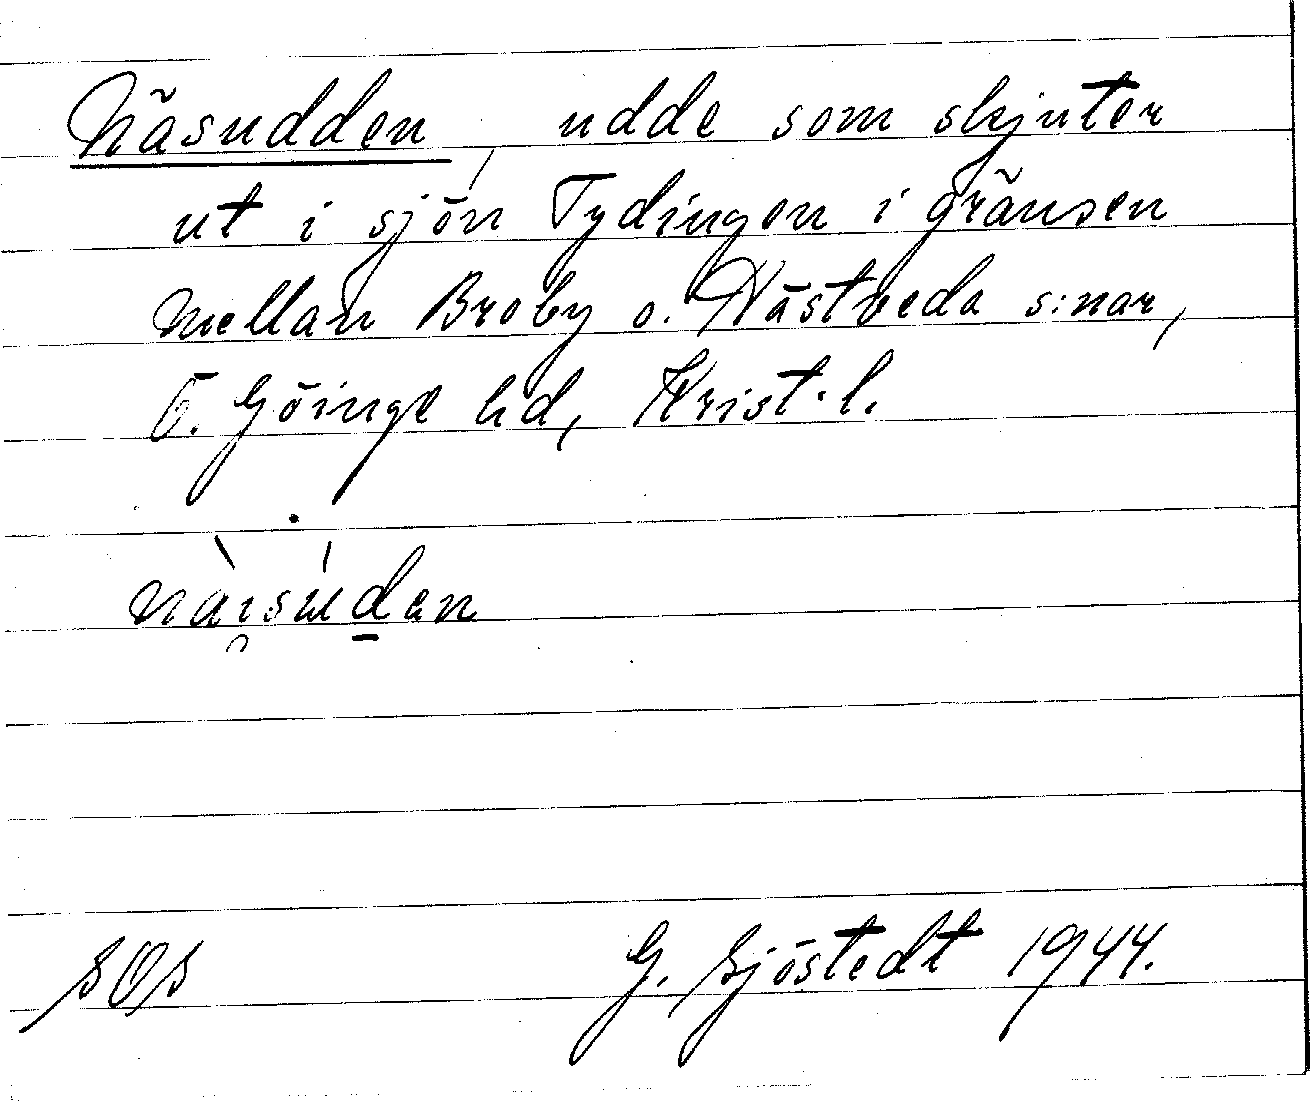 Näsudden, udde som skjuter
ut i sjön Tydingen i gränsen
mellan Broby o. Hästveda s:nar,
Ö. Göinge hd, Krist. l.
SOS G. Sjöstedt 1944.